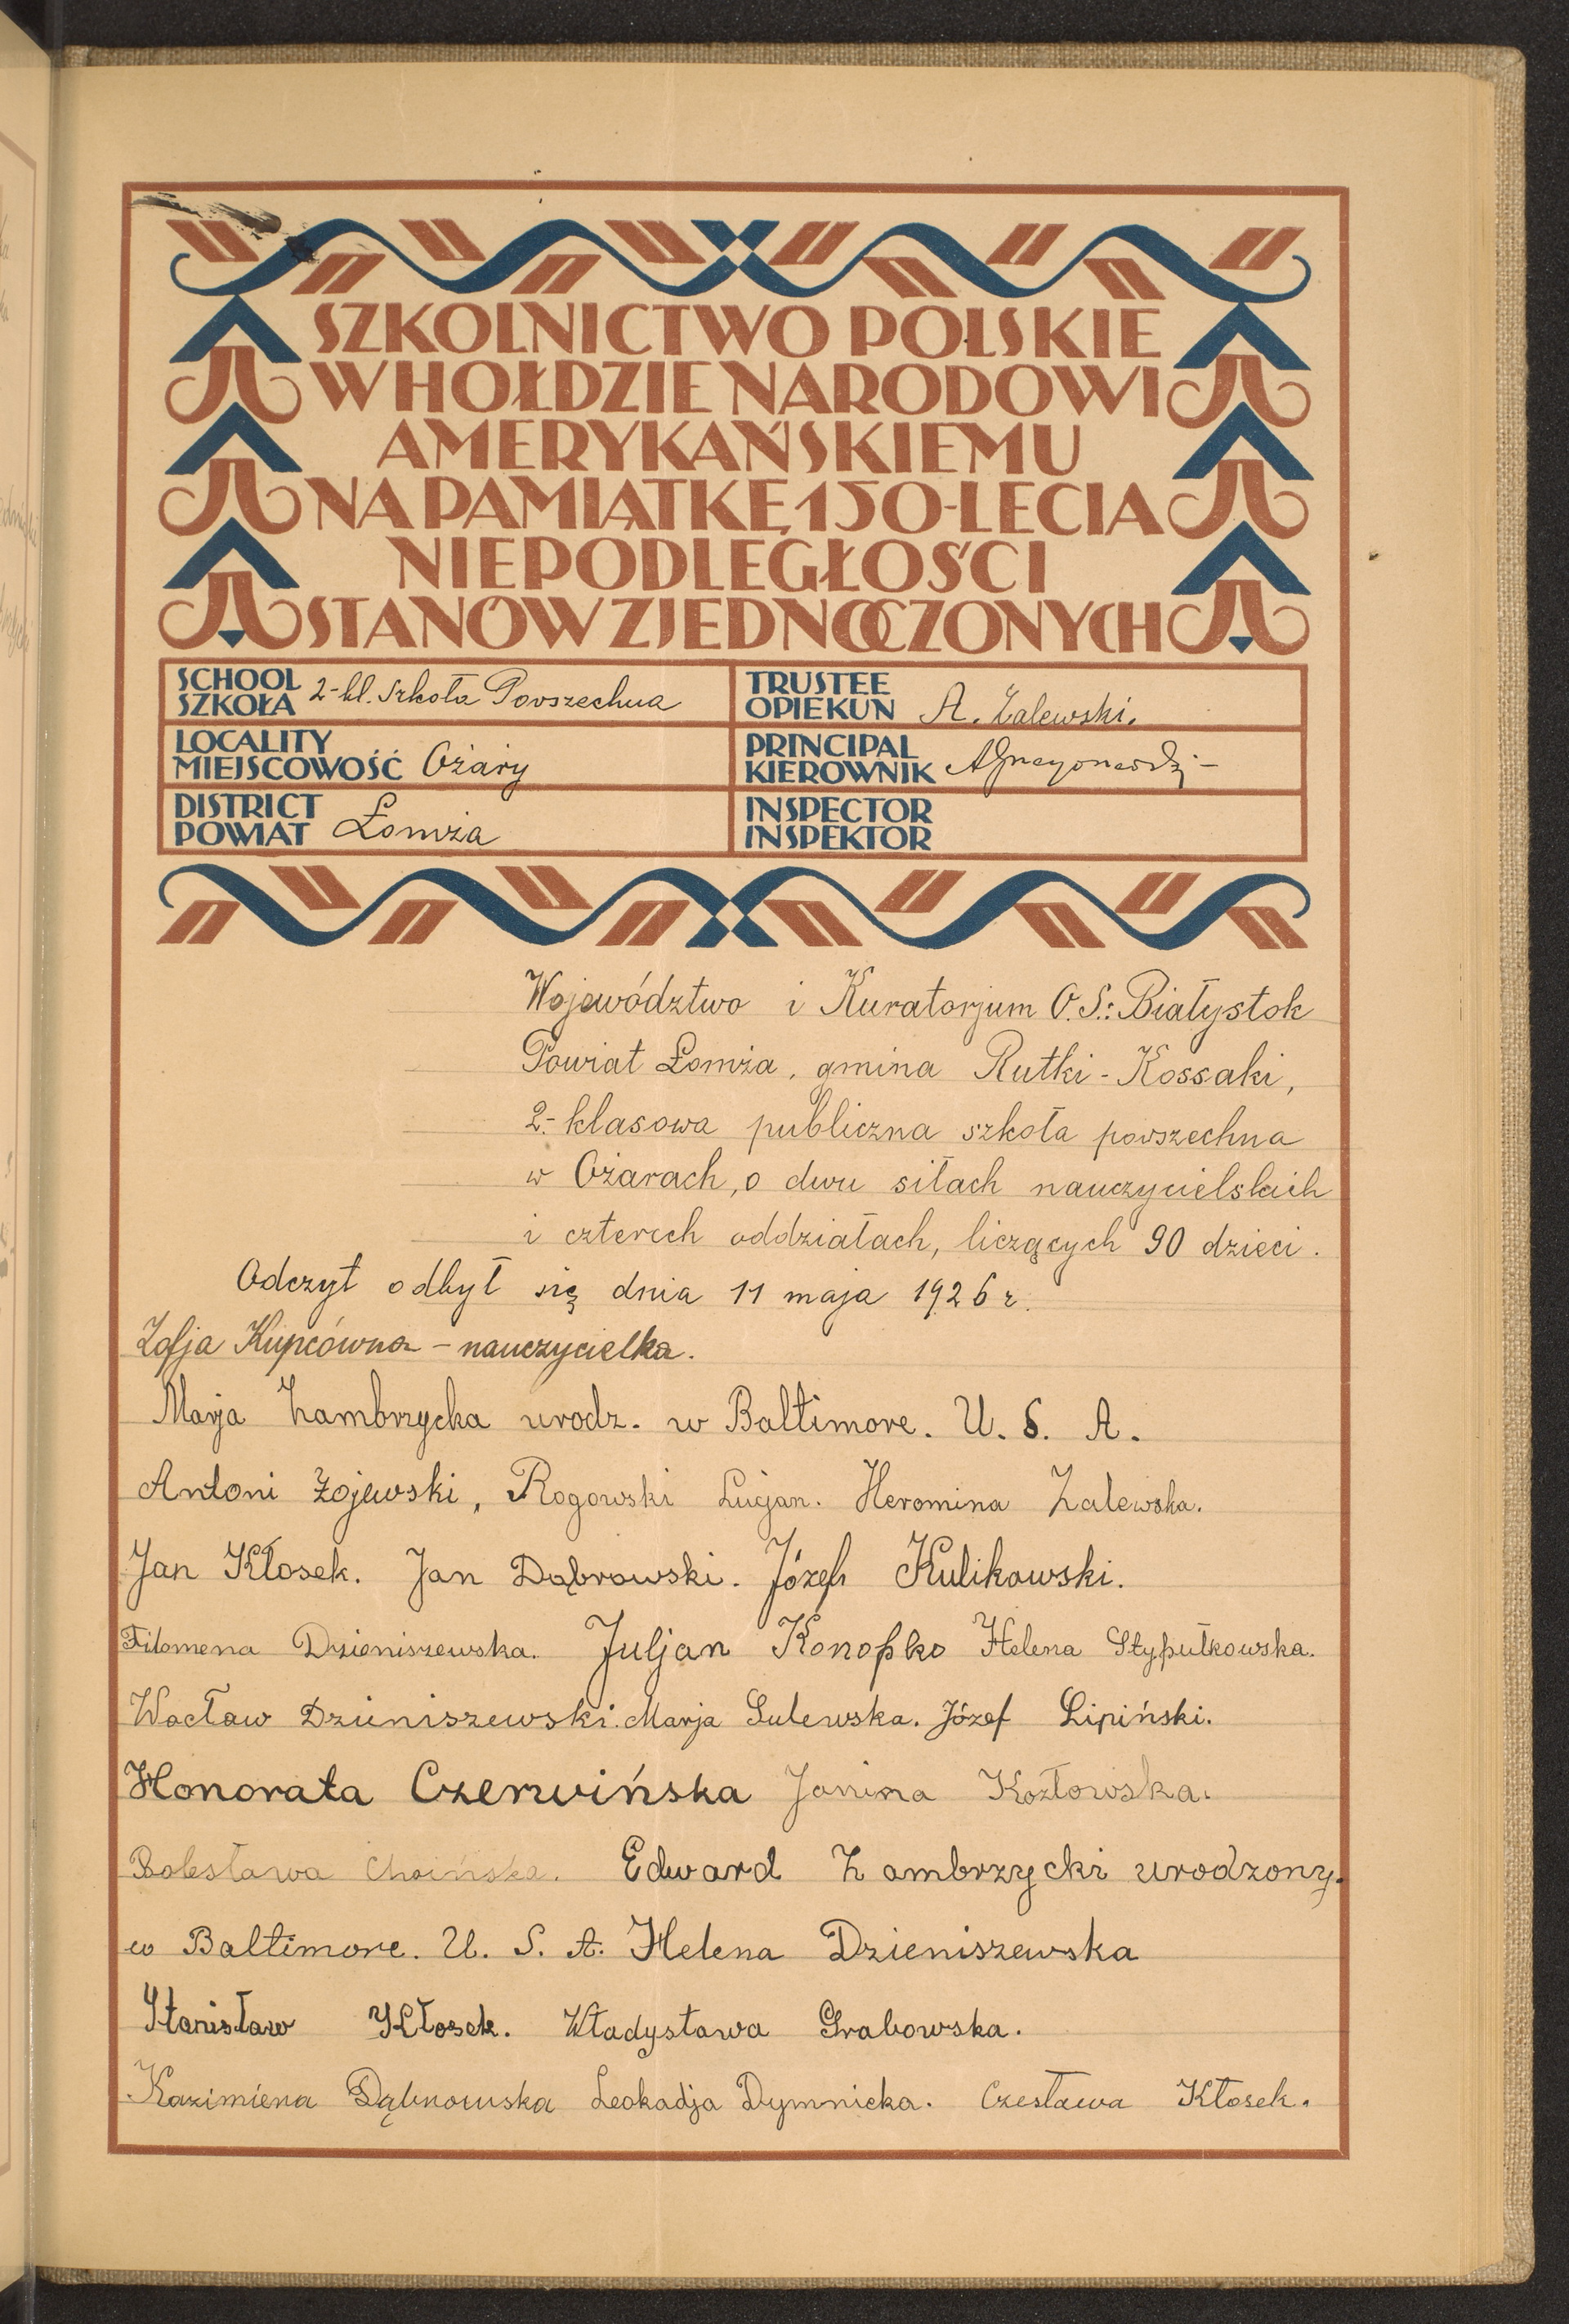 SZKOLNICTWO POLSKIE
W HOŁDZIE NARODOWI
AMERYKAŃSKIEMU
NA PAMIĄTKĘ 150-LECIA
NIEPODLEGŁOŚCI
STANÓW ZJEDNOCZONYCH
SCHOOL
SZKOŁA 2-kl. Szkoła Powszechna
TRUSTEE
OPIEKUN A. Zalewski.
LOCALITY
MIEJSCOWOŚĆ Ożary
PRINCIPAL
KIEROWNIK
DISTRICT
POWIAT Łomża
INSPECTOR
INSPEKTOR
Województwo i Kuratorjum O.S.: Białystok
Powiat Łomża, gmina Rutki-Kossaki,
2-klasowa publiczna szkoła powszechna
w Ożarach, o dwu siłach nauczycielskich
i czterech oddziałach, liczących 90 dzieci.
Odczyt odbył się dnia 11 maja 1926 r.
Zofja Kupcówna - nauczycielka.
Marja Zambrzycka urodz. w Baltimore. U. S. A.
Antoni Żojewski, Rogowski Lucjan. Heromina Zalewska.
Jan Kłosek. Jan Dąbrowski. Józef Kulikowski.
Filomena Dzieniszewska. Juljan Konopko Helena Stypułkowska.
Wacław Dzieniszewski. Marja Sulewska. Józef Lipiński.
Honorata Czerwińska Janina Kozłowska.
Bolesława Choińska. Edward Zambrzycki urodzony.
w Baltimore. U. S. A. Helena Dzieniszewska
Stanisław Kłosek. Władysława Grabowska.
Kazimiera Dąbrowska Leokadja Dymnicka. Czesława Kłosek.